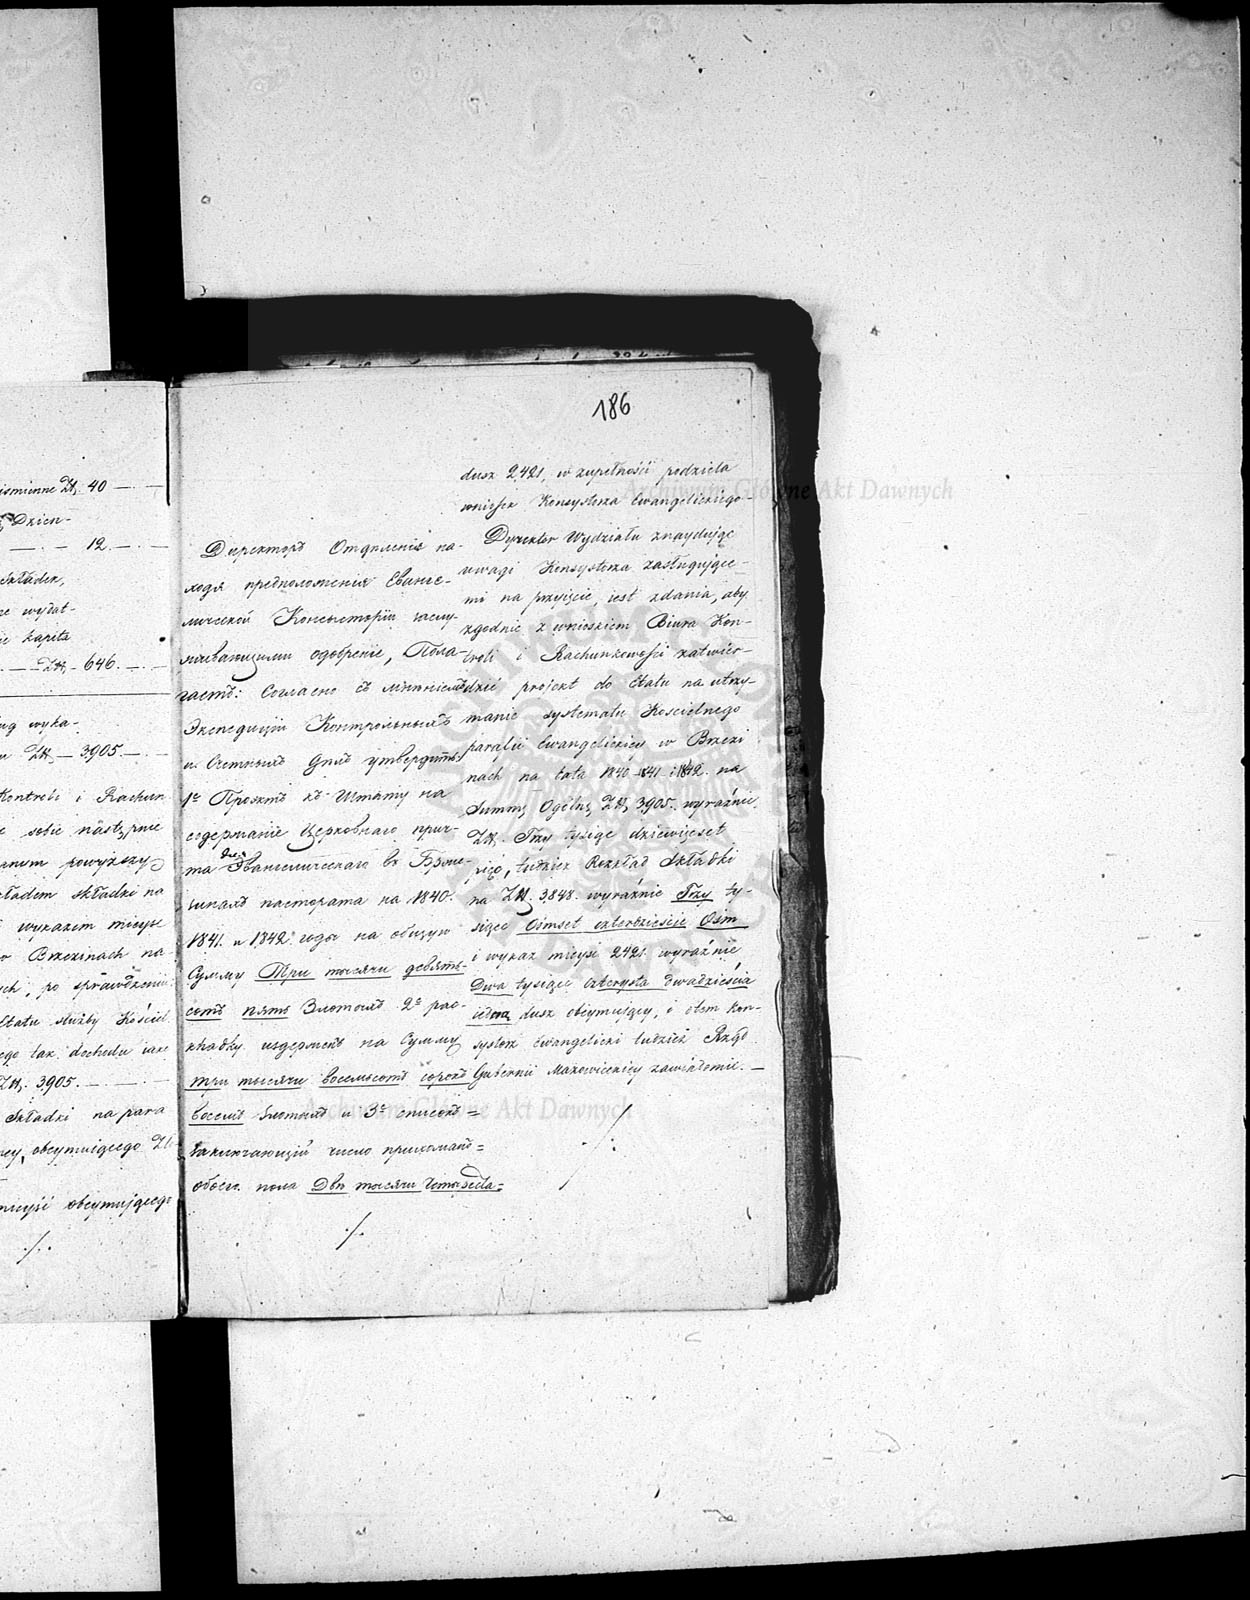 186
ismienne Zł. 40 —
Dzien-
— 12. —
składek,
wydat-
— Zł. 646. —
wyka-
Zł. — 3905. —
Kontroli i Rachun
sobie następnie
powyższy
składki na
wykazem mieysc
w Brzezinach na-
po sprawdzeniu
Etatu służby Kościel
dochodu
Zł. 3905. —
składki na para
obeymuiącego Zł
obeymującego
./.
Директоръ Отделенія на-
ходя предположенія Еванге-
лической Консисторіи заслу-
живающими одобреніе, Пола-
гаетъ: Согласно съ мнѣніемъ
Экспедиціи Контрольныхъ
и Счетныхъ Дѣлъ утвердить
1е Проэктъ къ Штату на
содержаніе Церковнаго прич-
та Евангелическаго въ Брже-
зинахъ пастората на 1840.
1841. и 1842. годы на общую
Сумму Три тысячи девять-
сотъ пять Злотыхъ 2е рас-
кладку издержекъ на Сумму
три тысячи восемьсотъ сорокъ
восемь злотыхъ и 3е списокъ=
заключающій число прихожанъ=
обоего пола Двѣ тысячи четыреста=
./.
dusz 2,421, w zupełności podziela
wniosek Konsystorza Ewangelickiego-
Dyrektor Wydziału znayduiąc
uwagi Konsystorza zasługujące-
mi na przyięcie, iest zdania, aby
zgodnie z wnioskiem Biura Kon-
troli i Rachunkowości zatwier-
dzić projekt do Etatu na utrzy-
manie systematu Kościelnego
parafii Ewangelickiey w Brzezi
nach na lata 1840. 1841. i 1842. na
Summę Ogólną Zł. 3905. wyraźnie
Zł. Trzy tysiące dziewięćset
pięć, tudzież Rozkład Składki
na Zł. 3,848. wyraźnie Trzy ty-
siące Ośmset czterdzieście Ośm
i wykaz mieysc 2421. wyraźnie
Dwa tysiące czterysta dwadzieścia
ieden dusz obeymujący, i o tem Kon-
systorz Ewangelicki tudzież Rząd
Gubernii Mazowieckiey zawiadomić. —
Archiwum Główne Akt Dawnych
Archiwum Główne Akt Dawnych